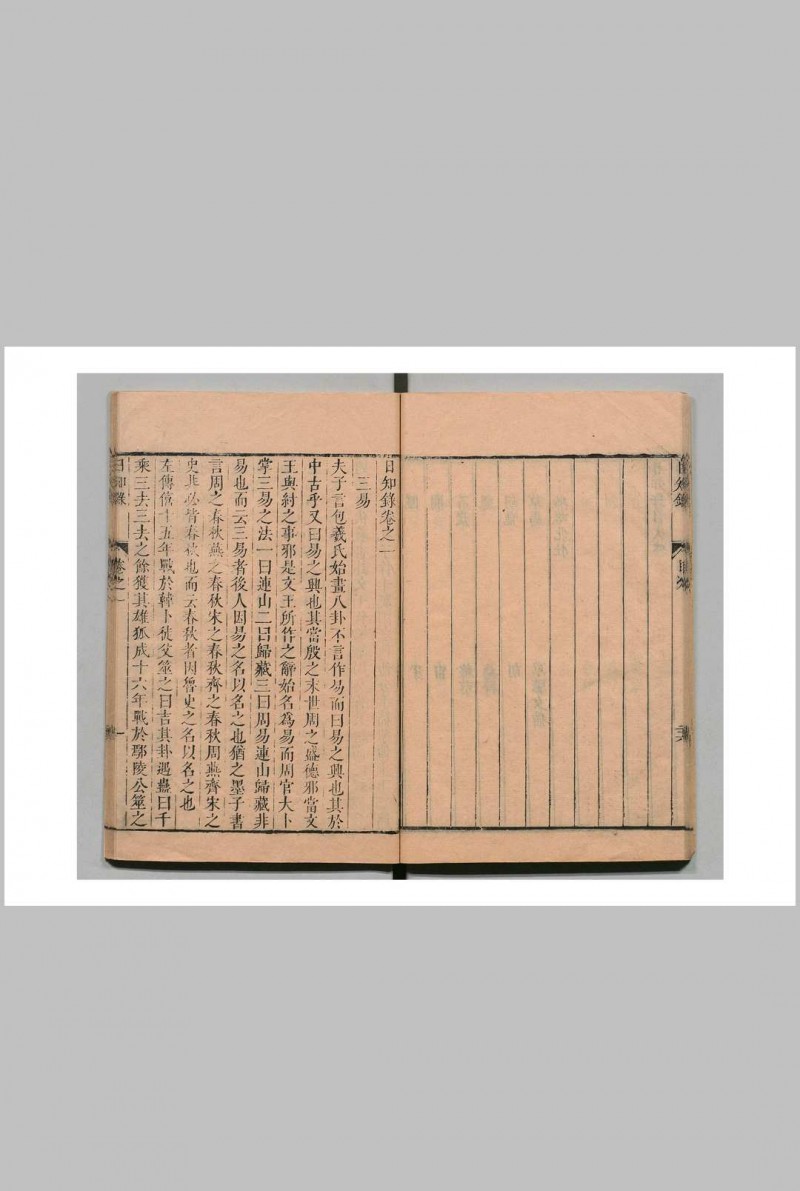 日知錄
日知錄卷之一
三易
夫子言包羲氏始畫八卦不言作易而曰易之興也其於
中古乎又曰易之興也其當殷之末世周之盛德邪當文
王與紂之事邪是文王所作之辭始名為易而周官大卜
掌三易之法一曰連山二曰歸藏三曰周易連山歸藏非
易也而云三易者後人因易之名以名之也猶之墨子書
言周之春秋燕之春秋宋之春秋齊之春秋周燕齊宋之
史非必皆春秋也而云春秋者因魯史之名以名之也
左傳僖十五年戰於韓卜徒父筮之曰吉其卦遇蠱曰千
乘三去三去之餘獲其雄狐成十六年戰於鄢陵公筮之
日知錄
卷之一
一